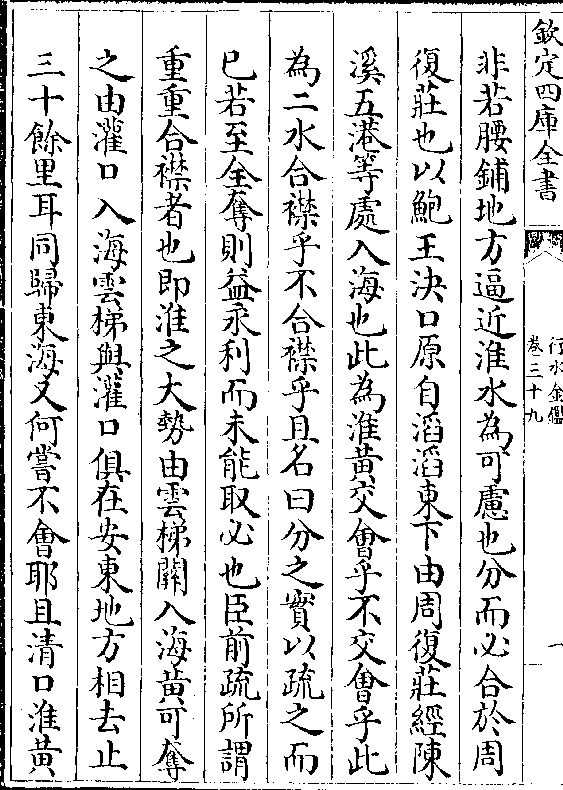 欽定四庫全書
行水金鑑
卷三十九
一
非若腰鋪地方逼近淮水為可慮也分而必合於周
復莊也以鮑王決口原自滔滔東下由周復莊經陳
溪五港等處入海也此為淮黃交㑹乎不交㑹乎此
為二水合襟乎不合襟乎且名曰分之實以疏之而
已若至全奪則益永利而未能取必也臣前疏所謂
重重合襟者也即淮之大勢由雲梯關入海黃可奪
之由灌口入海雲梯與灌口俱在安東地方相去止
三十餘里耳同歸東海又何嘗不㑹耶且清口淮黃